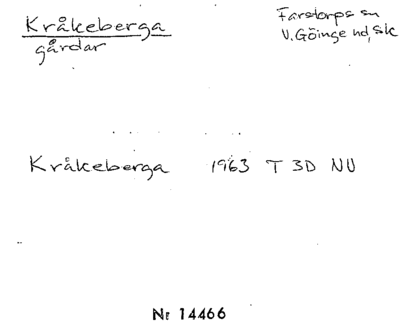 Kråkeberga
gårdar
Farstorps sn
V. Göinge hd, Sk
Kråkeberga 1963 T 3D NU
Nr 14466